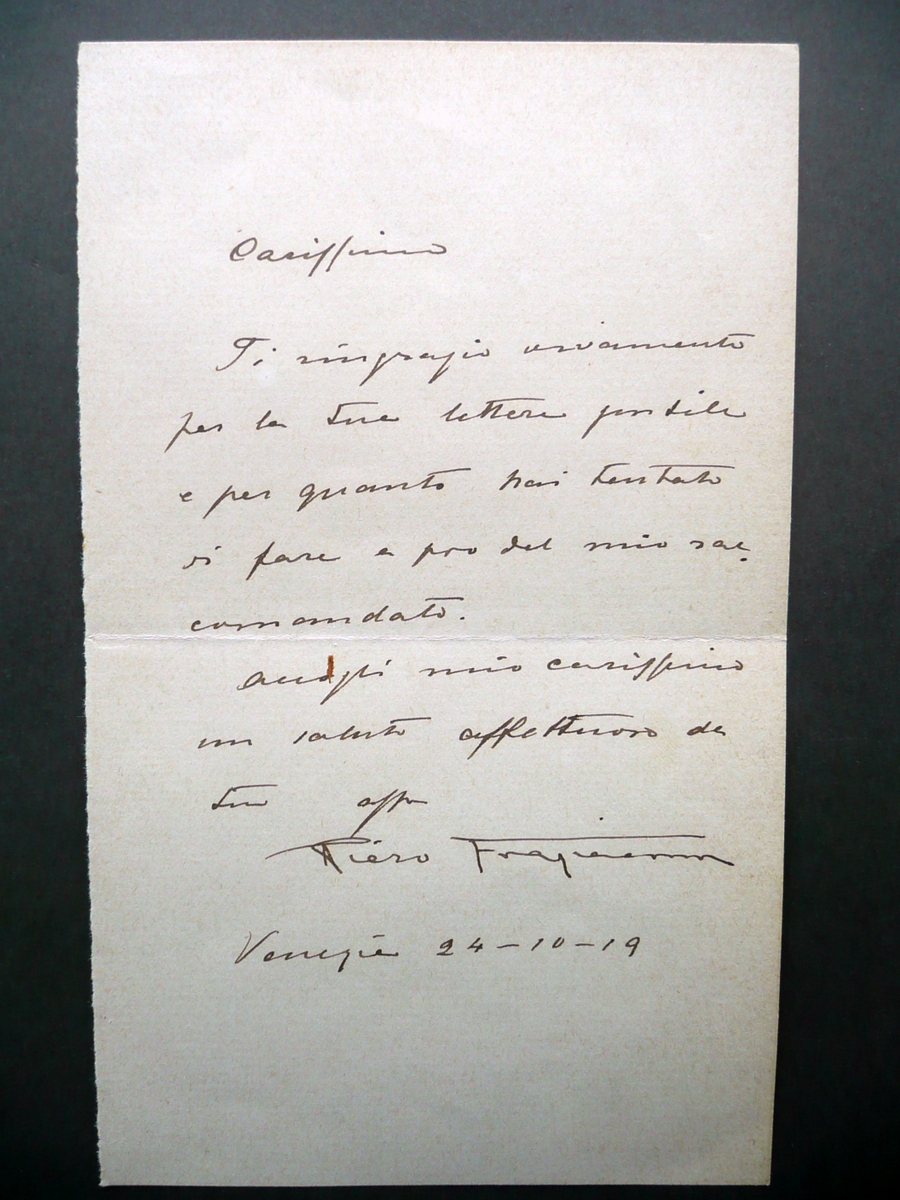 Carissimo
Ti ringrazio vivamente
per la tua lettera gentile
e per quanto hai tentato
di fare a pro del mio rac-
comandato.
Accogli mio carissimo
un saluto affettuoso dal
tuo affmo
Piero Fragiacomo
Venezia 24-10-19